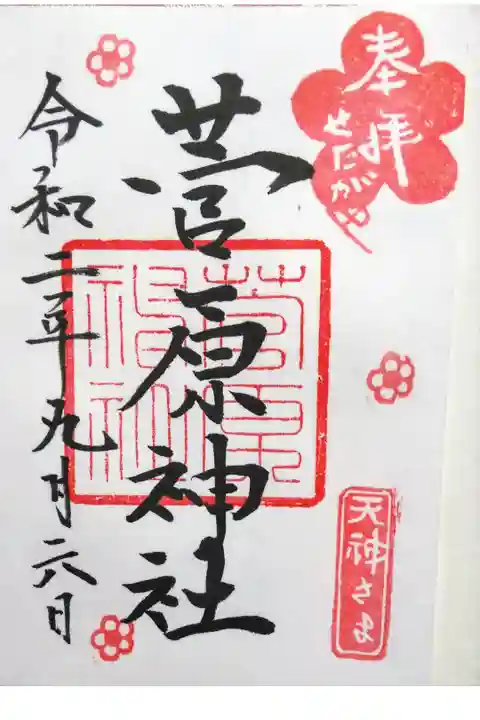 奉拝
せたがや
天神さま
菅原神社
菅原神社
令和二年九月六日